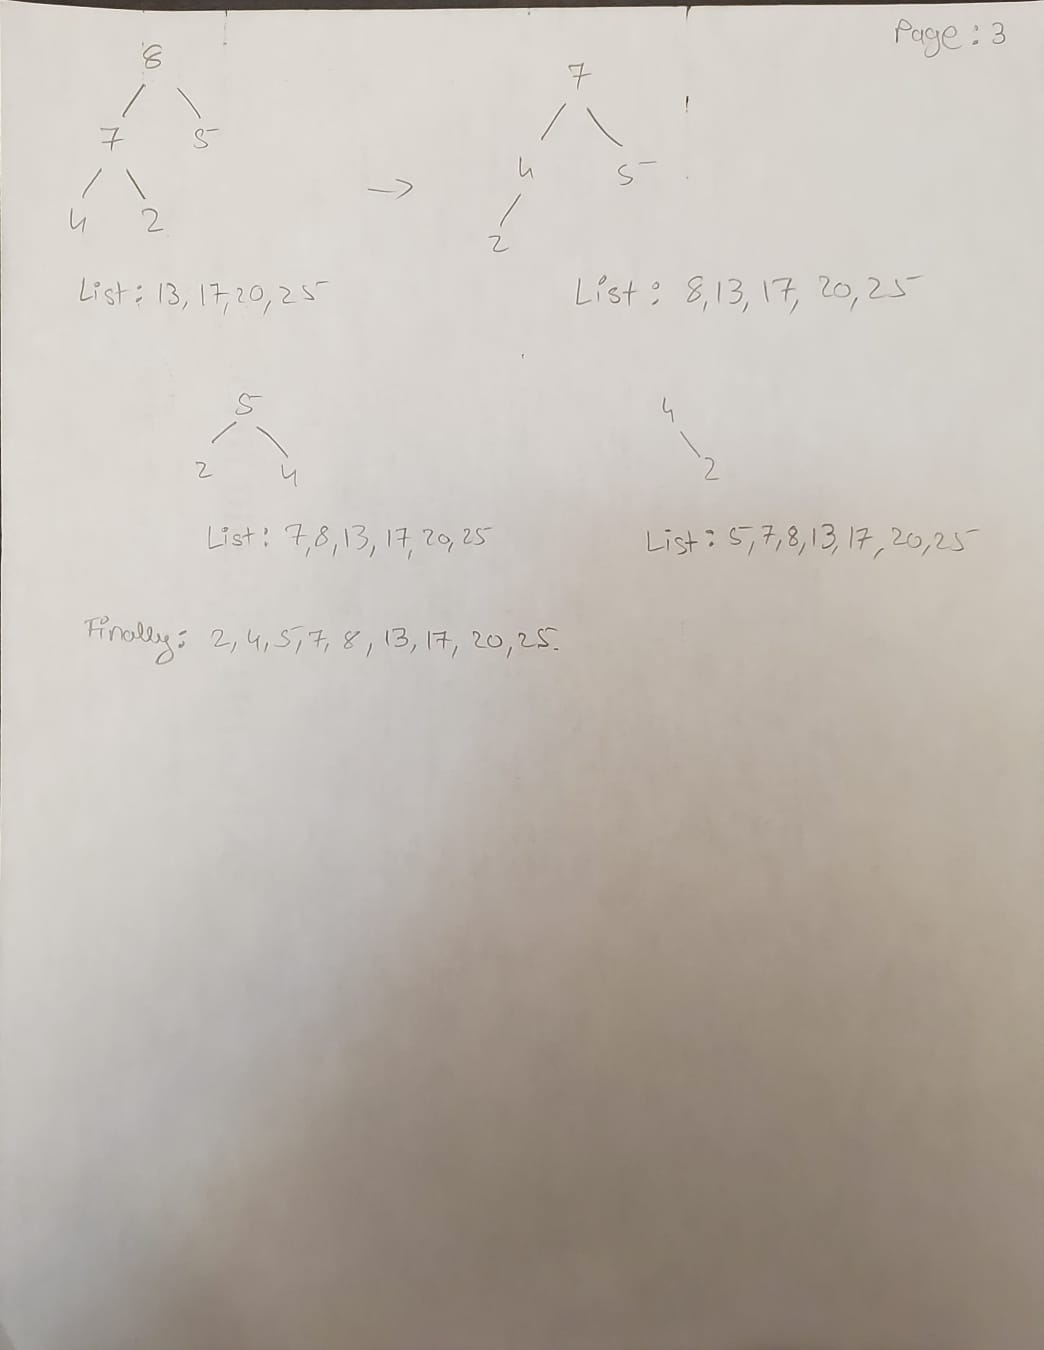 Page: 3
8
7 5
4 2
List: 13, 17, 20, 25
→
7
4 5
2
List: 8, 13, 17, 20, 25
5
2 4
List: 7, 8, 13, 17, 20, 25
4
2
List: 5, 7, 8, 13, 17, 20, 25
Finally: 2, 4, 5, 7, 8, 13, 17, 20, 25.